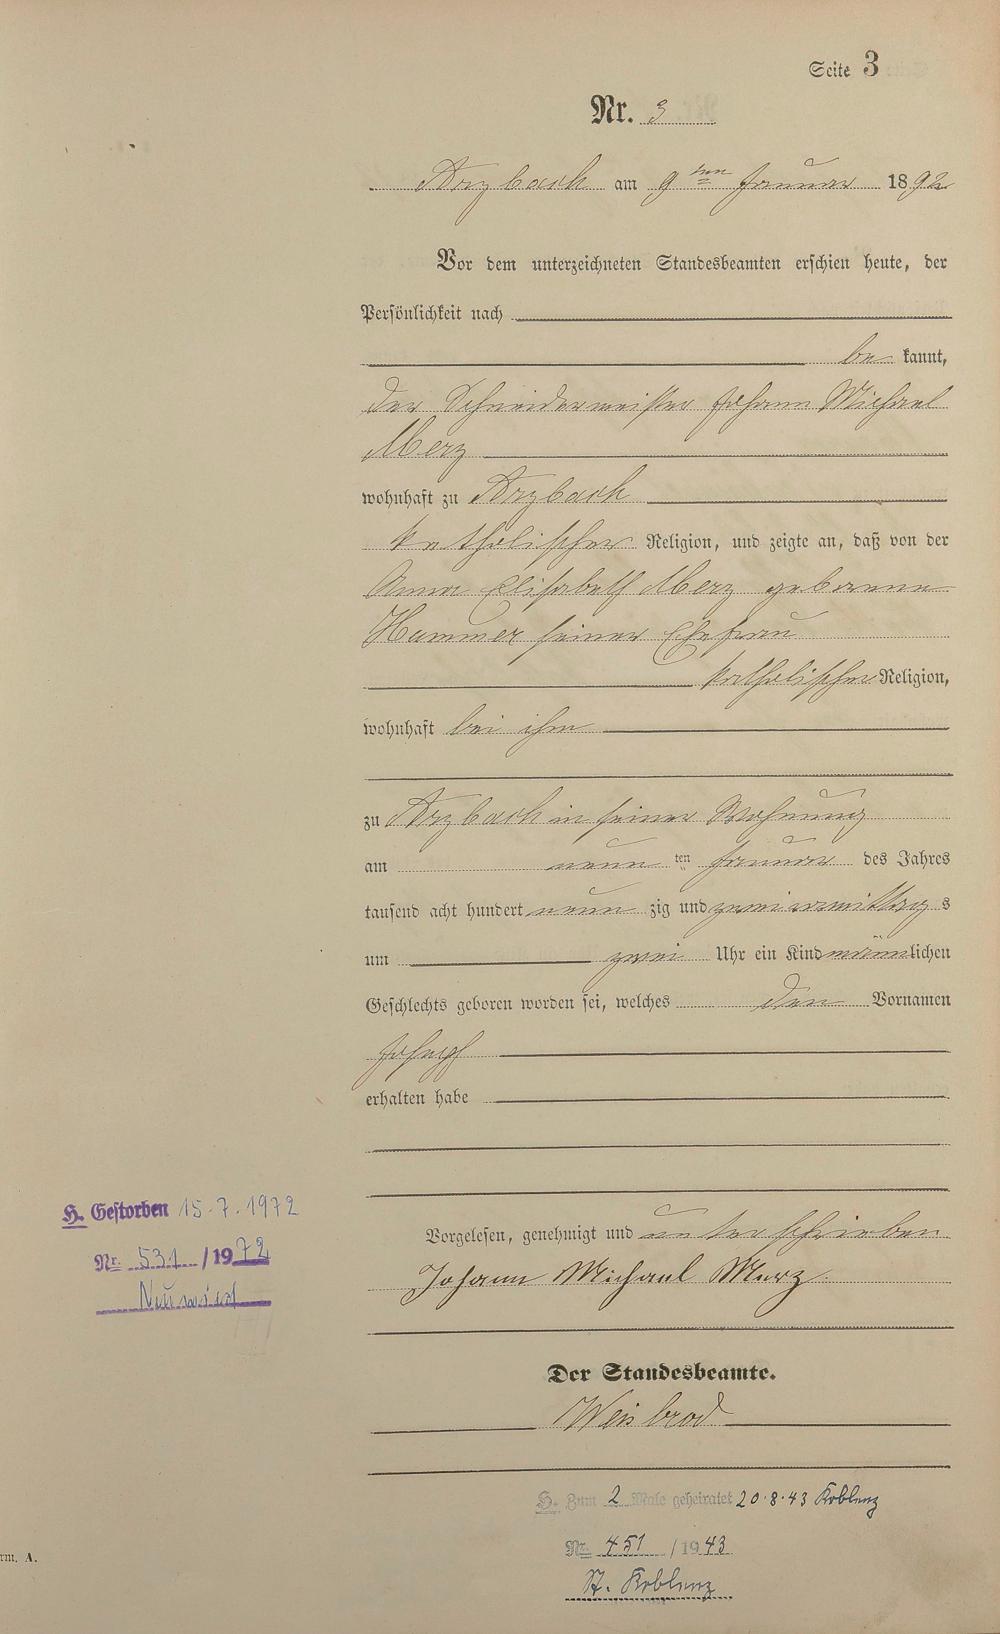 Seite 3
Nr. 3
Arzbach am 9ten Januar 1892
Vor dem unterzeichneten Standesbeamten erschien heute, der
Persönlichkeit nach
be kannt,
der Schneidermeister Johann Michael
Merz
wohnhaft zu Arzbach
katholischer Religion, und zeigte an, daß von der
Anna Elisabeth Merz geborene
Hammer seiner Ehefrau
katholischer Religion,
wohnhaft bei ihm
zu Arzbach in seiner Wohnung
am neun ten Januar des Jahres
tausend acht hundert neun zig und zwei vormittag s
um zwei Uhr ein Kind männlichen
Geschlechts geboren worden sei, welches den Vornamen
Joseph
erhalten habe
H. Gestorben 15.7.1972
Nr. 531 /1972
Neuwied
Vorgelesen, genehmigt und unterschrieben
Johann Michael Merz
Der Standesbeamte.
Weisbrod
H. Zum 2 Male geheiratet 20.8.43 Koblenz
Nr. 451 /1943
St. Koblenz
rm. A.